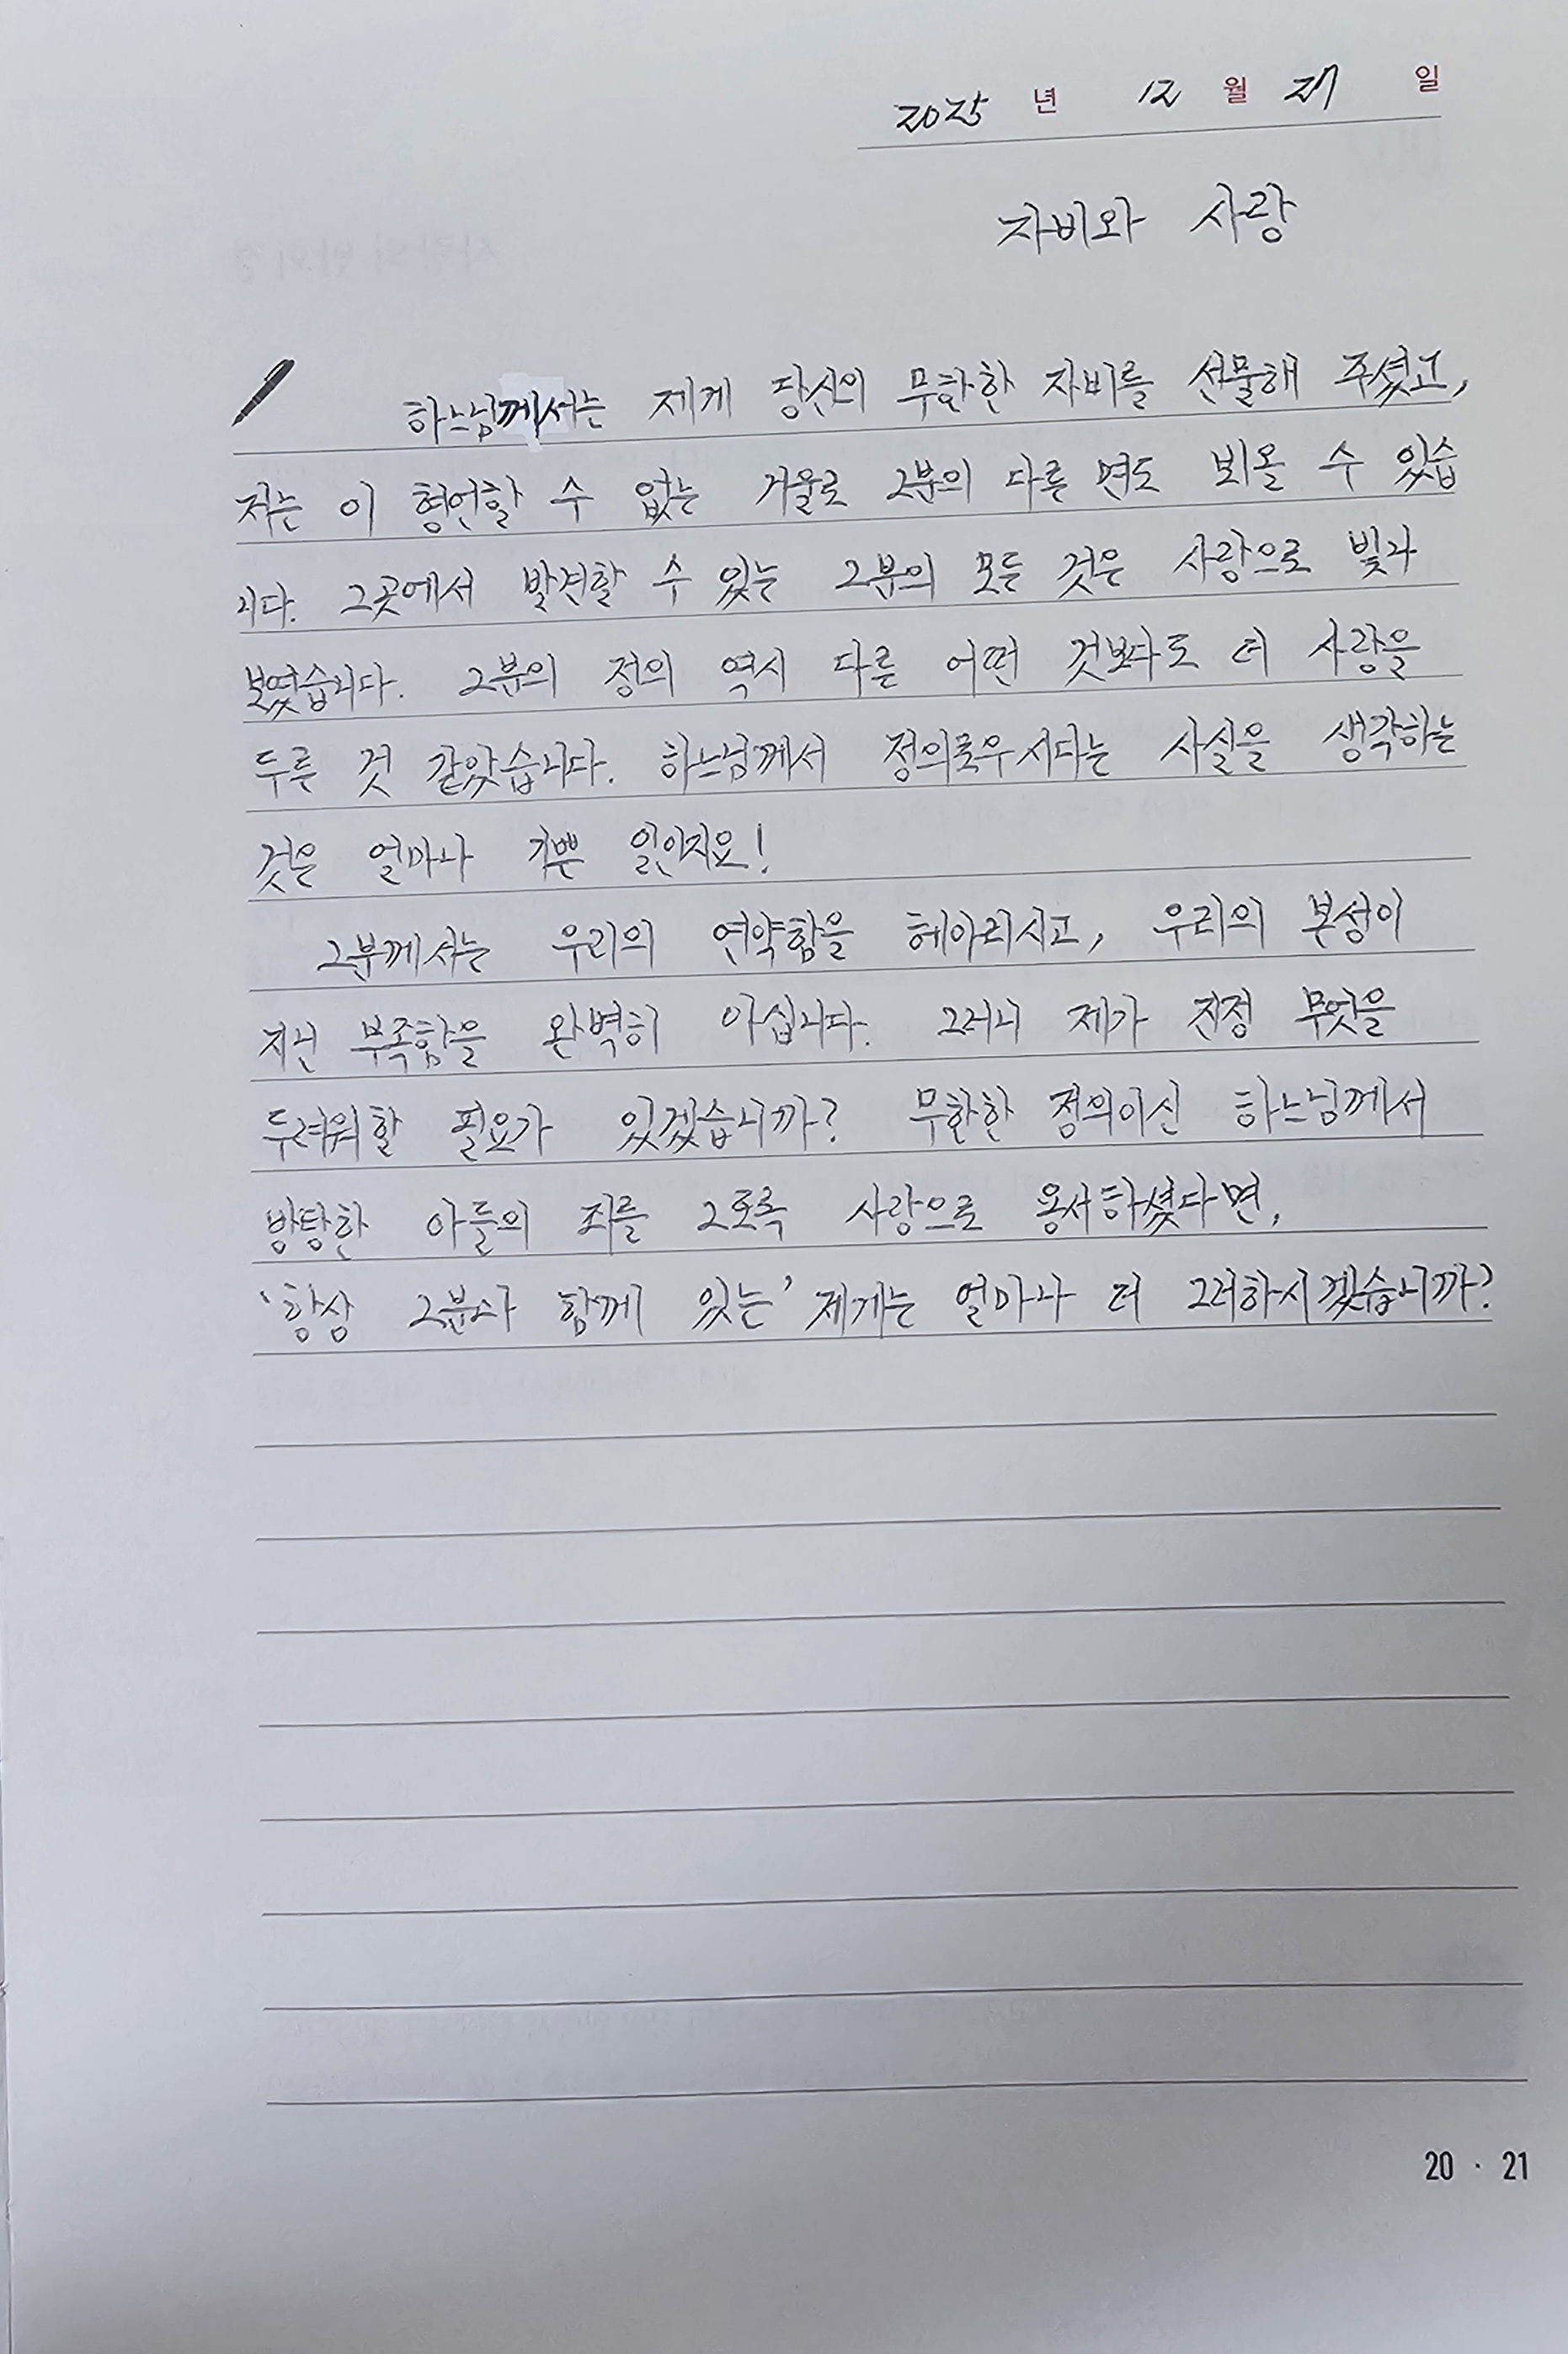 2025 년 12 월 27 일
자비와 사랑
하느님께서는 제게 당신의 무한한 자비를 선물해 주셨고,
저는 이 형언할 수 없는 거울로 그분의 다른 면도 뵈올 수 있습
니다. 그곳에서 발견할 수 있는 그분의 모든 것은 사랑으로 빛나
보였습니다. 그분의 정의 역시 다른 어떤 것보다도 더 사랑을
두른 것 같았습니다. 하느님께서 정의로우시다는 사실을 생각하는
것은 얼마나 기쁜 일인지요!
그분께서는 우리의 연약함을 헤아리시고, 우리의 본성이
지닌 부족함을 완벽히 아십니다. 그러니 제가 진정 무엇을
두려워할 필요가 있겠습니까? 무한한 정의이신 하느님께서
방탕한 아들의 죄를 그토록 사랑으로 용서하셨다면,
'항상 그분과 함께 있는' 제게는 얼마나 더 그러하시겠습니까?
20 · 21